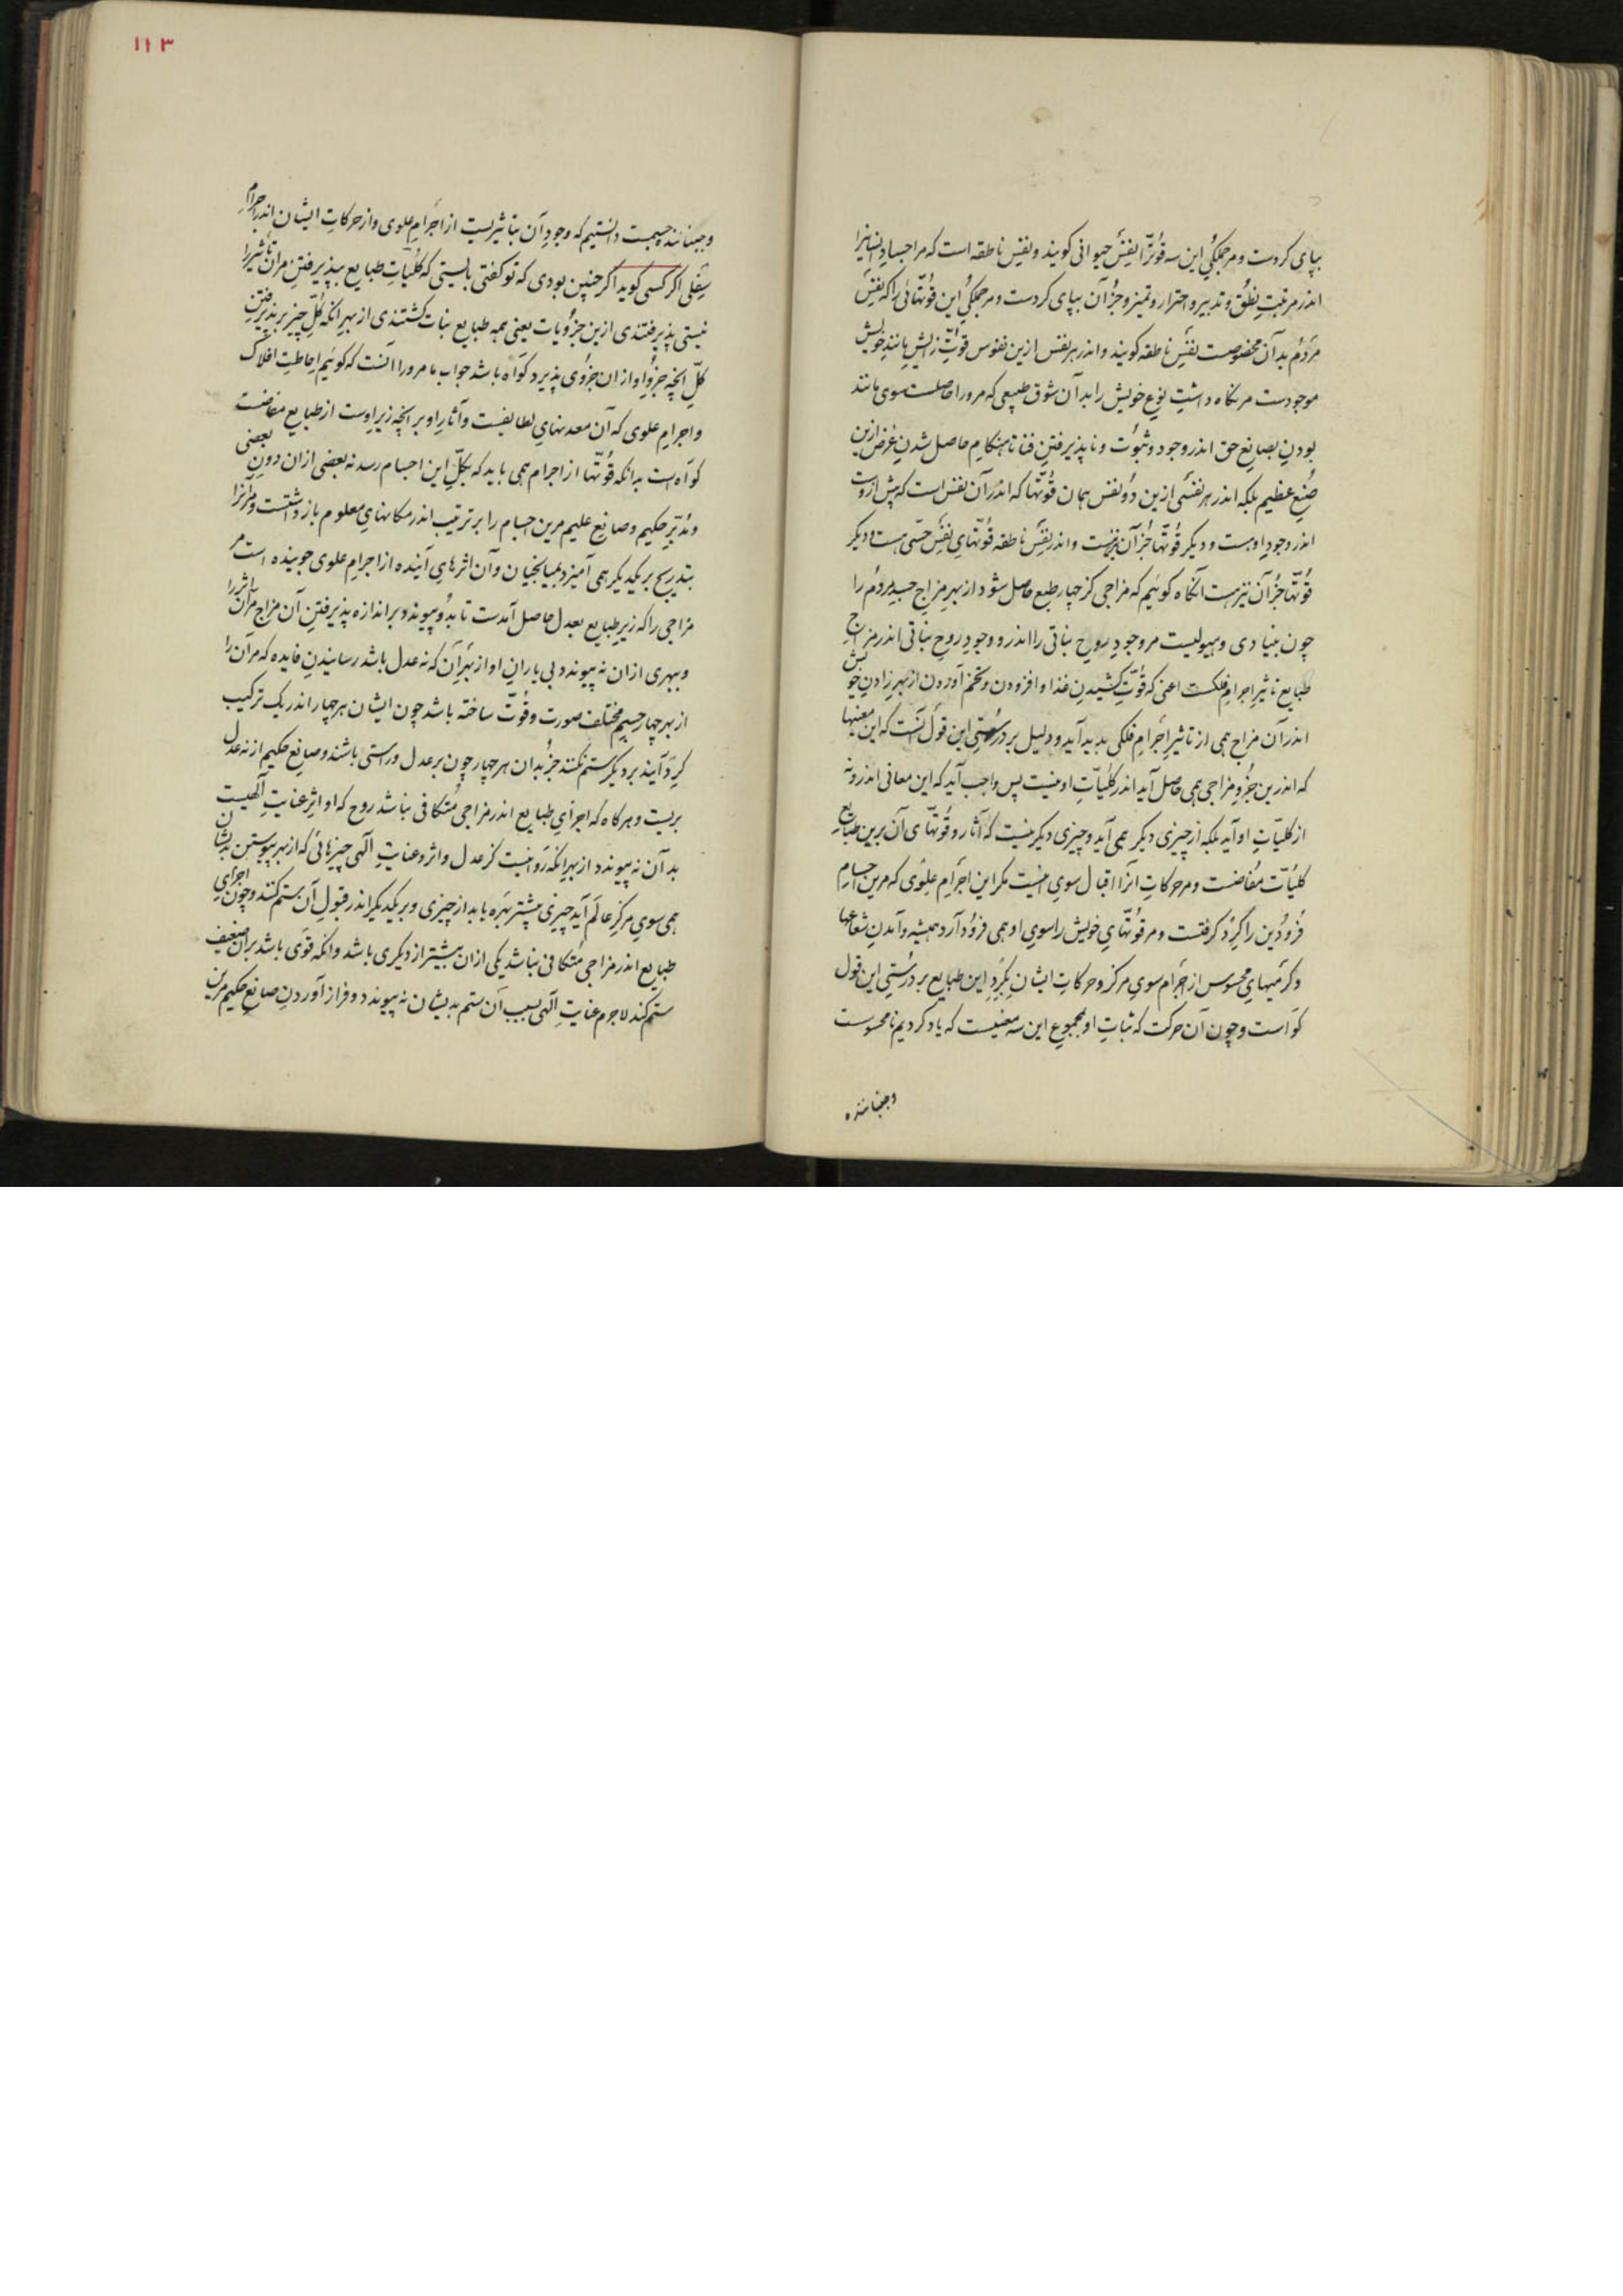 بپای کردست و مر جملگیِ این سه قوّترا نفسِ حیوانی کویند و نفسِ ناطقه است که مر اجسادِ انسانیرا
اندر مرتبتِ نطق و تدبیر و احتراز و تمیز و جز آن بپای کردست و مر جملگیِ این قوّتهائی را که نفسِ
مردم بدان مخصوصست نفسِ ناطقه کویند و اندر هر نفس ازین نفوس قوّتِ زایشِ مانندِ خویش
موجودست مر نکاه داشتِ نوعِ خویش را بدان شوق طبیعی که مرورا حاصلست سوی مانند
بودن بصانعِ حق اندر وجود و ثبوت و ناپذیرفتنِ فنا تا هنکامِ حاصل شدنِ غرض ازین
صنعِ عظیم بلکه اندر هر نفسی ازین دو نفس همان قوّتها که اندر آن نفس است که پیش ازوست
اندر وجودِ اوست و دیکر قوّتها جز آن نیزست و اندر نفسِ ناطقه قوّتهایِ نفسِ حسّی هست و دیکر
قوّتها جز آن نیز هست آنکاه کوئیم که مزاجی کز چهار طبع حاصل شود از بهرِ مزاجِ جسدِ مردم را
چون بنیادی و هیولیست مر وجودِ روحِ نباتی را اندرو و وجودِ روحِ نباتی اندر مزاجِ
طبایع تاثیرِ اجرامِ فلکست اعنی که قوّتِ کشیدنِ غذا و افزودن و تخم آوردن از بهرِ زادنِ خویش
اندر آن مزاج همی از تاثیرِ اجرامِ فلکی پدید آید و دلیل بر درستیِ این قول آنست که این معنیها
که اندرین جزوِ مزاجی همی حاصل آید اندر کلیّاتِ او نیست پس واجب آید که این معانی اندرو نه
از کلیّاتِ او آید بلکه از چیزی دیکر همی آید و چیزی دیکر نیست که آثار و قوّتهای آن برین طبایع
کلیّات مفاضست و مر حرکاتِ انرا اقبال سوی اینست مکر این اجرامِ علوی که مرین اجسامِ
فرودین را کرد کرفتست و مر قوّتهایِ خویش را سویِ او همی فرود آرد همیشه و آمدنِ شعاعها
و کرمیهایِ محسوس از اجرام سویِ مرکز و حرکاتِ ایشان بکردِ این طبایع بر درستیِ این قول
کواست و چون آن حرکت که ثباتِ او بمجموعِ این سه معنیست که یاد کردیم نامحسوست
و جنباننده
۱۱۳
و جنباننده جسمست دانستیم که وجودِ آن بتاثیریست از اجرامِ علوی و از حرکاتِ ایشان اندر اجرامِ
سفلی اکر کسی کوید اکر چنین بودی که تو کفتی بایستی که کلیّاتِ طبایع بپذیرفتنِ مران تاثیر را
نیستی پذیرفتندی ازین جزویات یعنی همه طبایع نبات کشتندی از بهرِ انکه کلِّ چیز بر پذیرفتنِ
کلِّ انچه جزوِ او از ان جزوی پذیرد کواه باشد جواب ما مرورا انست که کوئیم احاطتِ افلاک
و اجرامِ علوی که آن معدنهایِ لطایفست و آثارِ او بر انچه زیرِ اوست از طبایع مفاضست
کواه است بدانکه قوّتها از اجرام همی باید که بکلِّ این اجسام رسد نه بعضی ازان دونِ بعضی
و مدبّرِ حکیم و صانعِ علیم مرین اجسام را بر ترتیب اندر مکانهایِ معلوم باز داشتست و مرانرا
بتدریج بر یکدیکر همی آمیزد بمیانجیان و آن اثرهایِ آینده از اجرامِ علوی جوینده است مر
مزاجی را که زیرِ طبایع بعدل حاصل آمدست تا بدو پیوندد بر اندازه پذیرفتنِ آن مزاج مران اثر را
و ببهری ازان نه پیوندد بی یارانِ او از بهرِ آن که نه عدل باشد رسانیدنِ فایده که مرآن را
از بهرِ چهار جسمِ مختلف صورت و قوّت ساخته باشد چون ایشان هر چهار اندر یک ترکیب
کرد آیند بر دیکر ستم نکنند جز بدان هر چهار چون بر عدل و راستی باشند و صانعِ حکیم از نه عدل
بریست و هرکاه که اجزایِ طبایع اندر مزاجی متکافی نباشد روح که او اثرِ عنایتِ الهیست
بدان نه پیوندد از بهرِ انکه روا نیست کز عدل و اثر و عنایتِ الهی چیزهائی که از بهرِ پیوستن بدیشان
همی سوی مرکزِ عالم آید چیزی بیشتر بهره یابد از چیزی و بر یکدیکر اندر قبولِ آن ستم کنند و چون اجزایِ
طبایع اندر مزاجی متکافی نباشد یکی ازان بیشتر از دیکری باشد و انکه قوی باشد بران ضعیف
ستم کند لاجرم عنایتِ الهی بسببِ آن ستم بدیشان نه پیوندد و فراز آوردنِ صانعِ حکیم مرین